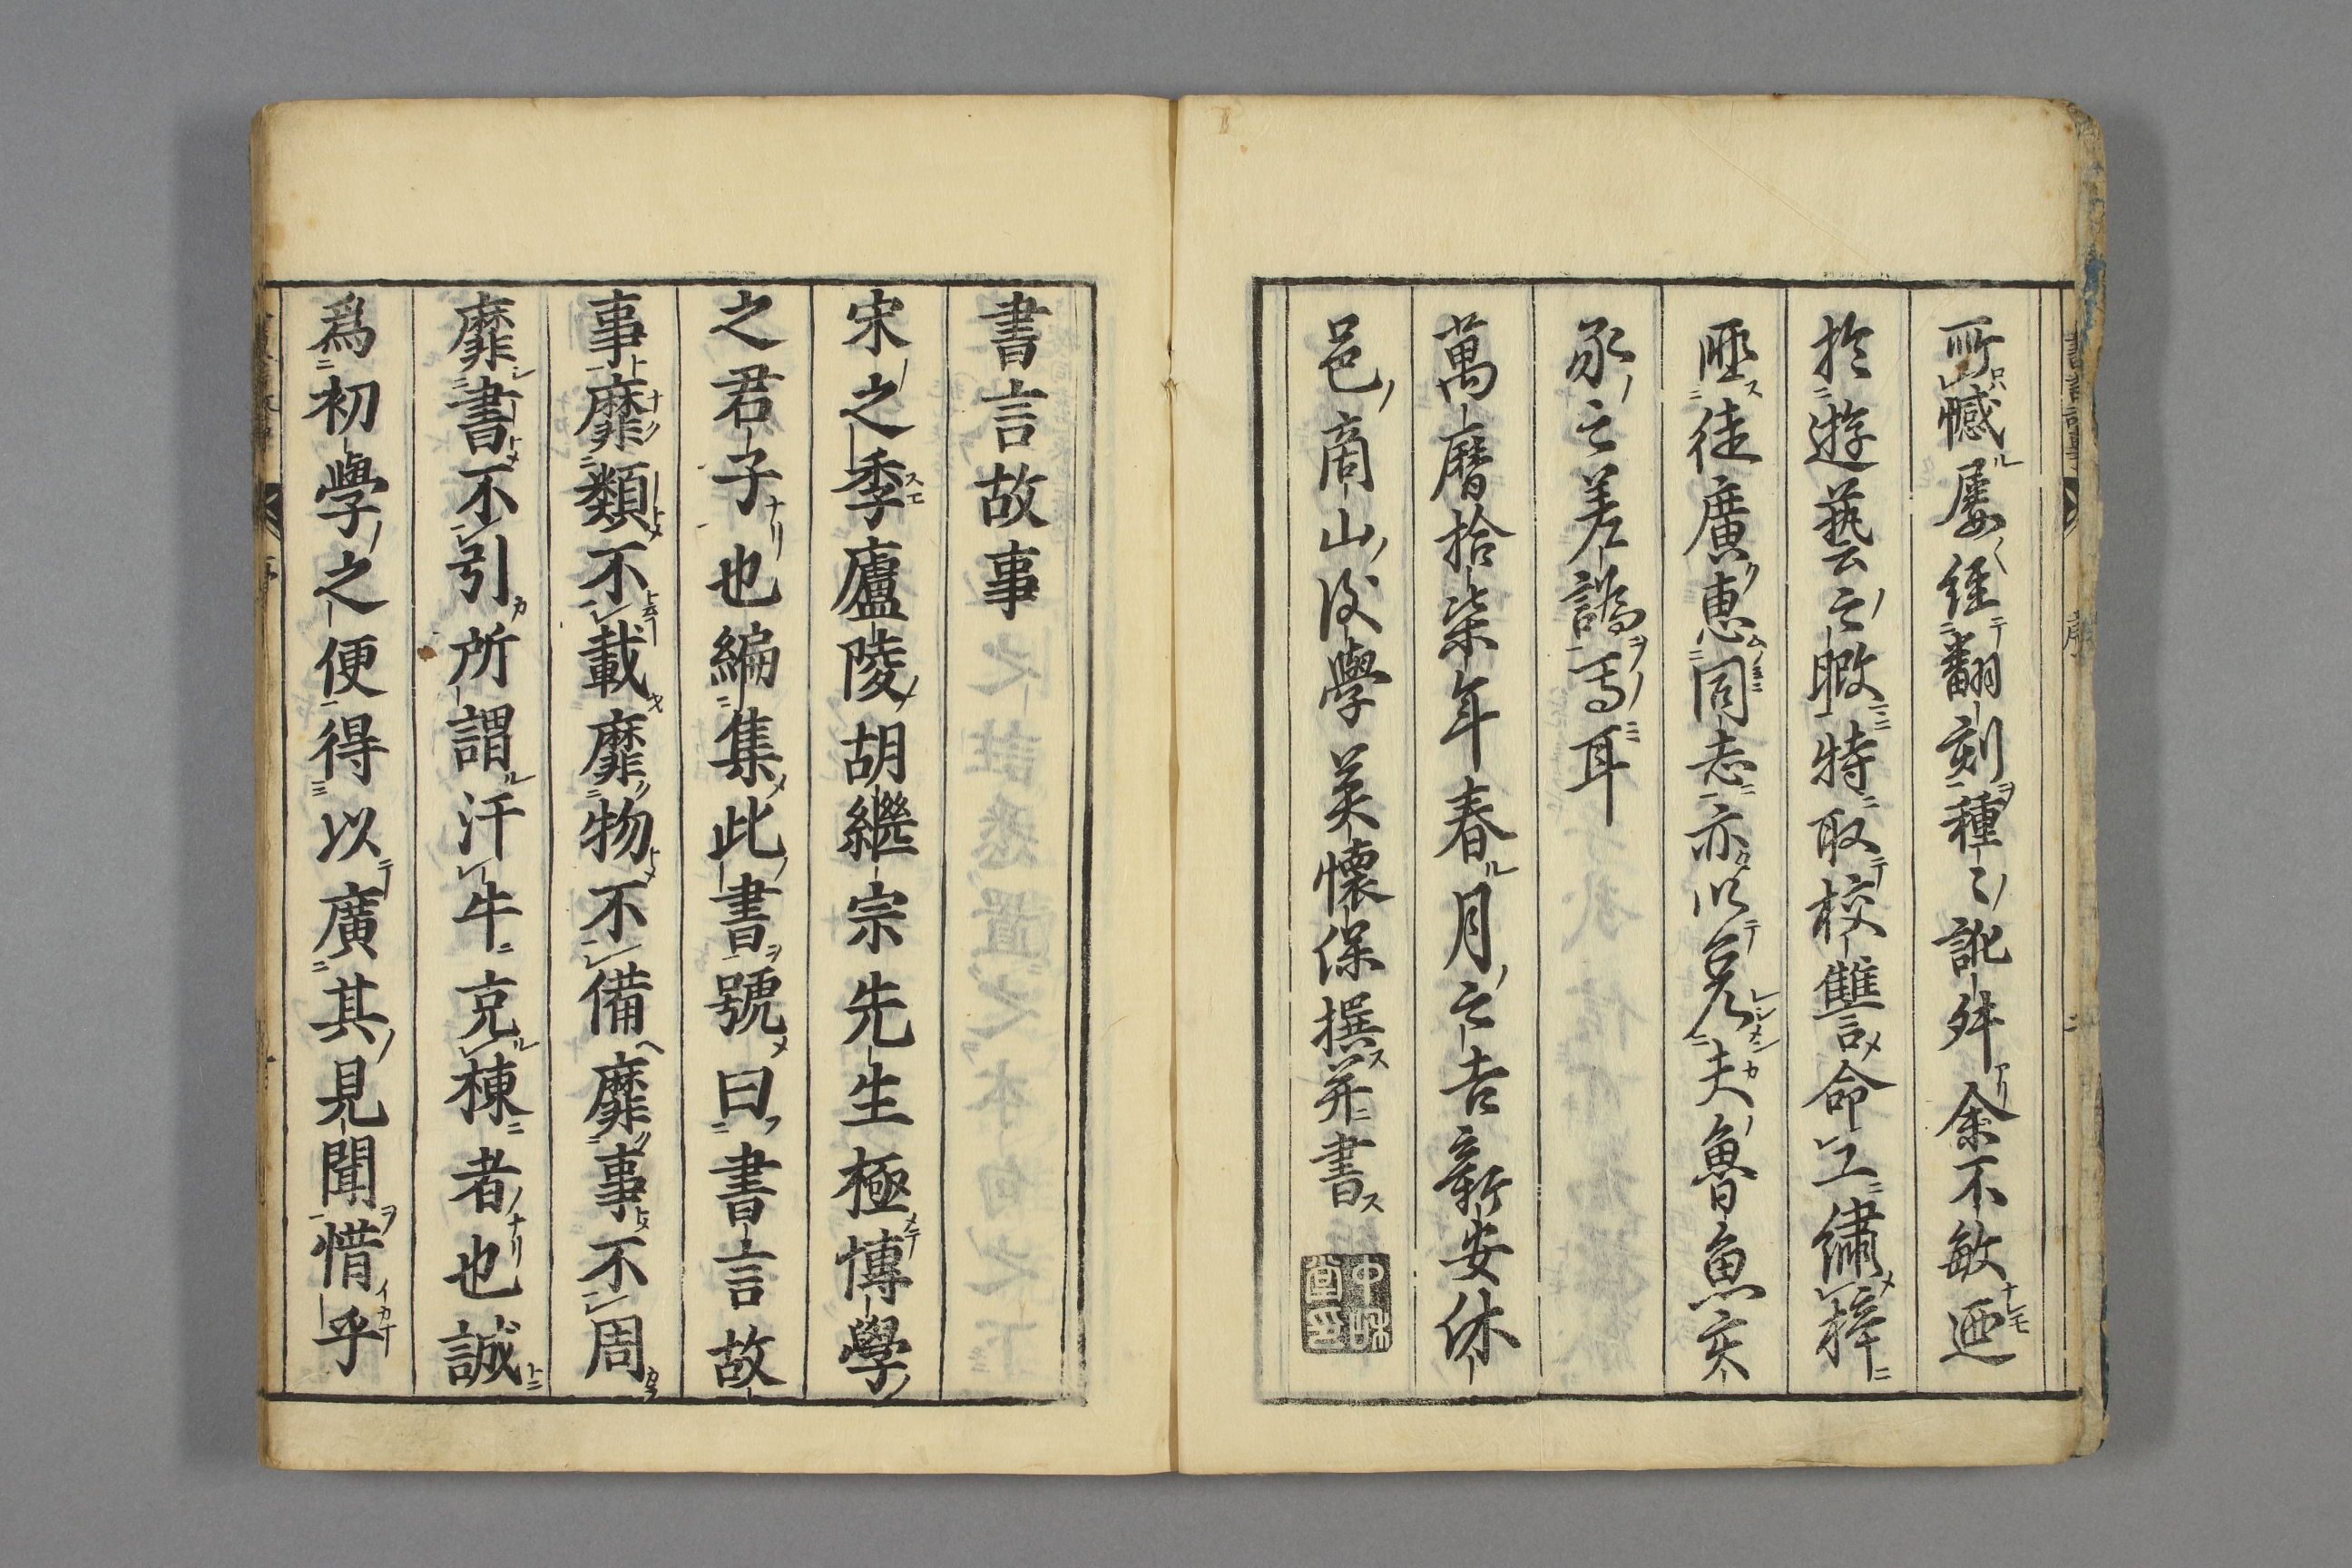 所憾屡經翻刻種〻訛舛余不敏迺
於遊藝之暇特取校讐命工繡梓
匪徒廣惠同志亦以免夫魯魚亥
豕之差譌焉耳
萬曆拾柒年春月之吉新安休
邑商山後學吴懷保撰并書
書言故事
宋之季廬陵胡繼宗先生極博學
之君子也編集此書號曰書言故
事靡類不載靡物不備靡事不周
靡書不引所謂汗牛充棟者也誠
爲初學之便得以廣其見聞惜乎